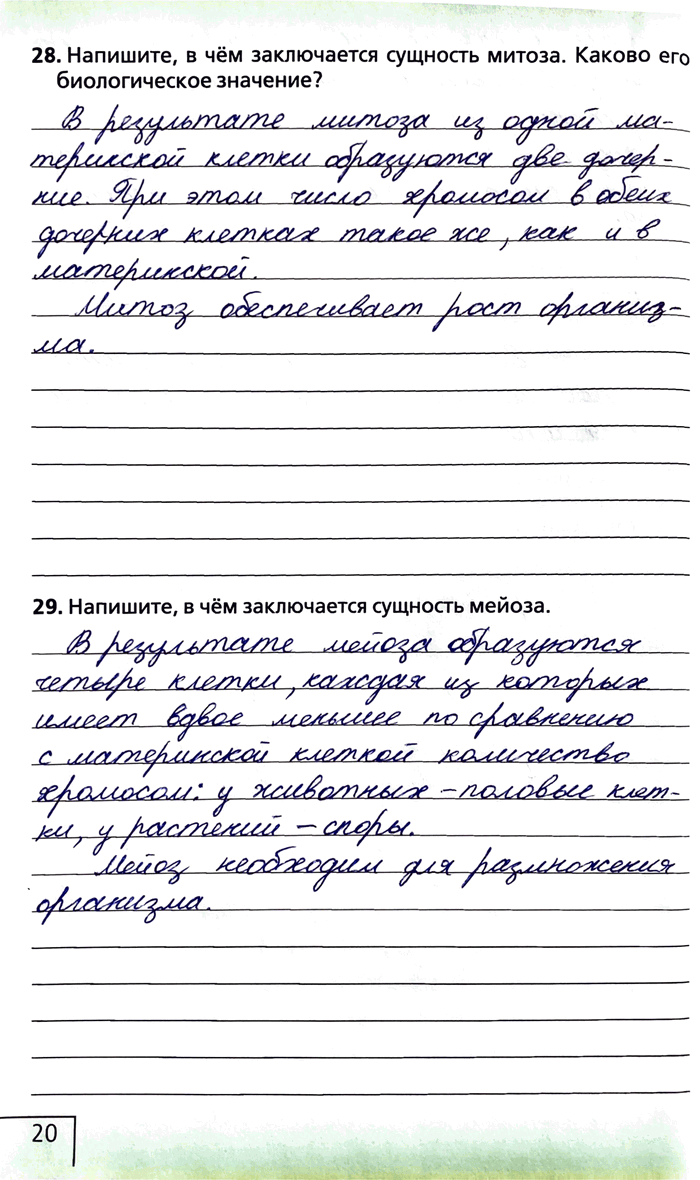 28. Напишите, в чём заключается сущность митоза. Каково его
биологическое значение?
В результате митоза из одной ма-
теринской клетки образуются две дочер-
ние. При этом число хромосом в обеих
дочерних клетках такое же, как и в
материнской.
Митоз обеспечивает рост организ-
ма.
29. Напишите, в чём заключается сущность мейоза.
В результате мейоза образуются
четыре клетки, каждая из которых
имеет вдвое меньшее по сравнению
с материнской клеткой количество
хромосом: у животных – половые клет-
ки, у растений – споры.
Мейоз необходим для размножения
организма.
20